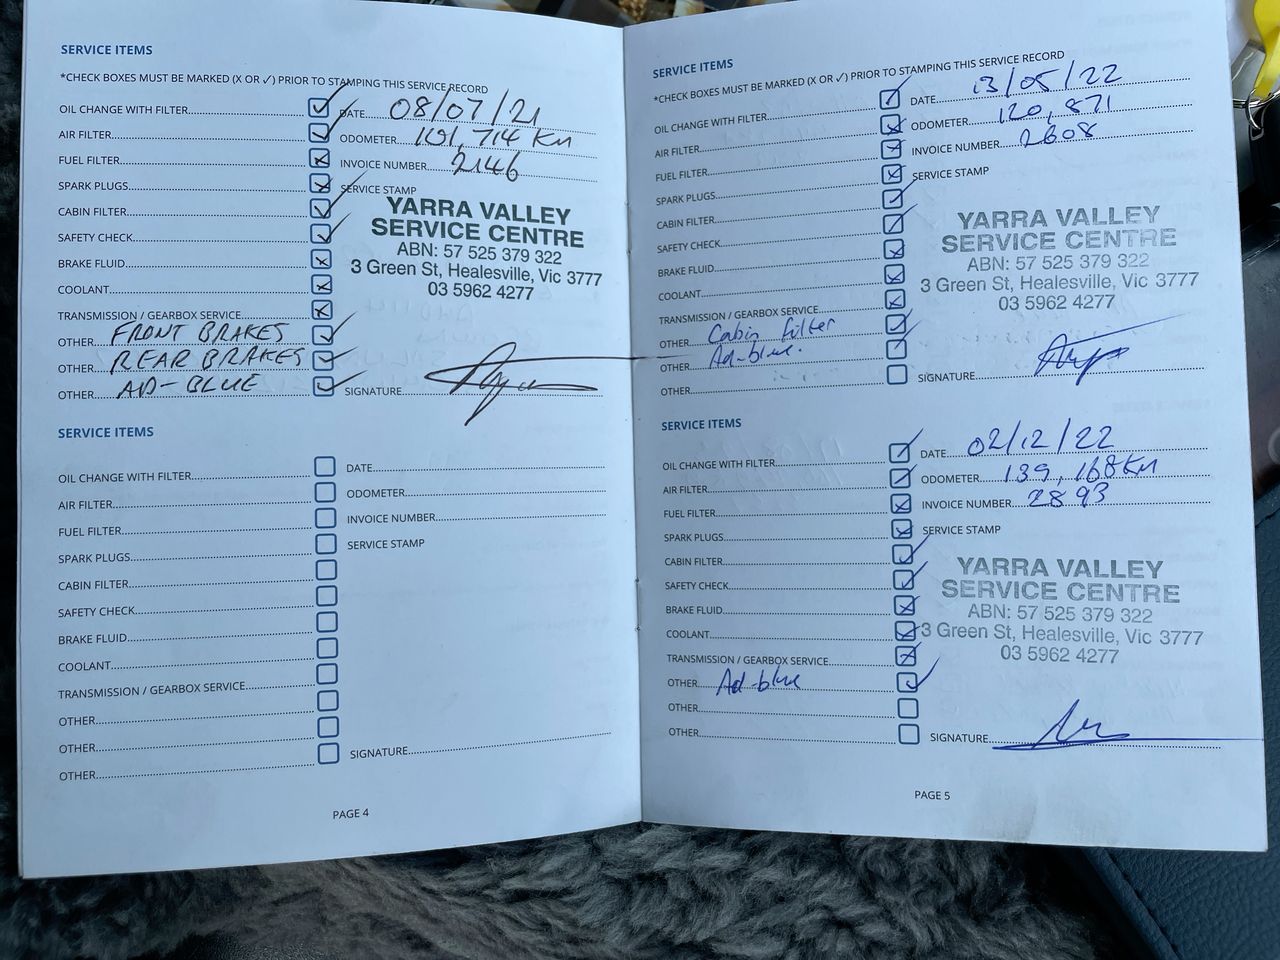 SERVICE ITEMS
*CHECK BOXES MUST BE MARKED (X OR ✓) PRIOR TO STAMPING THIS SERVICE RECORD
OIL CHANGE WITH FILTER ✓ DATE 08/07/21
AIR FILTER ✓ ODOMETER 101,714 Km
FUEL FILTER X INVOICE NUMBER 2146
SPARK PLUGS X SERVICE STAMP
CABIN FILTER ✓
SAFETY CHECK ✓
BRAKE FLUID X
COOLANT X
TRANSMISSION / GEARBOX SERVICE X
YARRA VALLEY
SERVICE CENTRE
ABN: 57 525 379 322
3 Green St, Healesville, Vic 3777
03 5962 4277
OTHER FRONT BRAKES ✓
OTHER REAR BRAKES ✓
OTHER AD-BLUE ✓ SIGNATURE
SERVICE ITEMS
OIL CHANGE WITH FILTER DATE
AIR FILTER ODOMETER
FUEL FILTER INVOICE NUMBER
SPARK PLUGS SERVICE STAMP
CABIN FILTER
SAFETY CHECK
BRAKE FLUID
COOLANT
TRANSMISSION / GEARBOX SERVICE
OTHER
OTHER
OTHER SIGNATURE
PAGE 4
SERVICE ITEMS
*CHECK BOXES MUST BE MARKED (X OR ✓) PRIOR TO STAMPING THIS SERVICE RECORD
OIL CHANGE WITH FILTER ✓ DATE 13/05/22
AIR FILTER X ODOMETER 120,871
FUEL FILTER X INVOICE NUMBER 2608
SPARK PLUGS X SERVICE STAMP
CABIN FILTER ✓
SAFETY CHECK ✓
BRAKE FLUID X
COOLANT X
TRANSMISSION / GEARBOX SERVICE X
YARRA VALLEY
SERVICE CENTRE
ABN: 57 525 379 322
3 Green St, Healesville, Vic 3777
03 5962 4277
OTHER Cabin filter ✓
OTHER Ad-blue.
OTHER SIGNATURE
SERVICE ITEMS
OIL CHANGE WITH FILTER ✓ DATE 02/12/22
AIR FILTER ✓ ODOMETER 139,168 Km
FUEL FILTER X INVOICE NUMBER 2893
SPARK PLUGS X SERVICE STAMP
CABIN FILTER ✓
SAFETY CHECK ✓
BRAKE FLUID X
COOLANT X
TRANSMISSION / GEARBOX SERVICE X
YARRA VALLEY
SERVICE CENTRE
ABN: 57 525 379 322
3 Green St, Healesville, Vic 3777
03 5962 4277
OTHER Ad-blue ✓
OTHER
OTHER SIGNATURE
PAGE 5